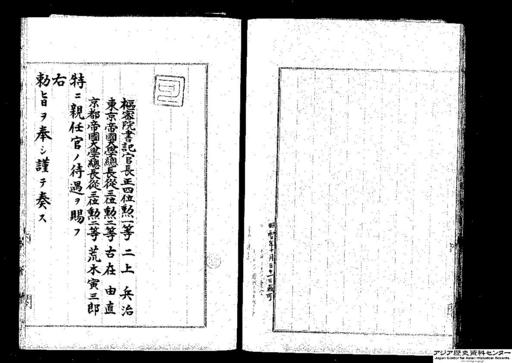 樞密院書記官長正四位勲一等 二上兵治
東京帝國大學總長從三位勲二等 古在由直
京都帝國大學總長從三位勲二等 荒木寅三郎
特ニ親任官ノ待遇ヲ賜フ
右
勅旨ヲ奉シ謹テ奏ス
アジア歴史資料センター
Japan Center for Asian Historical Records